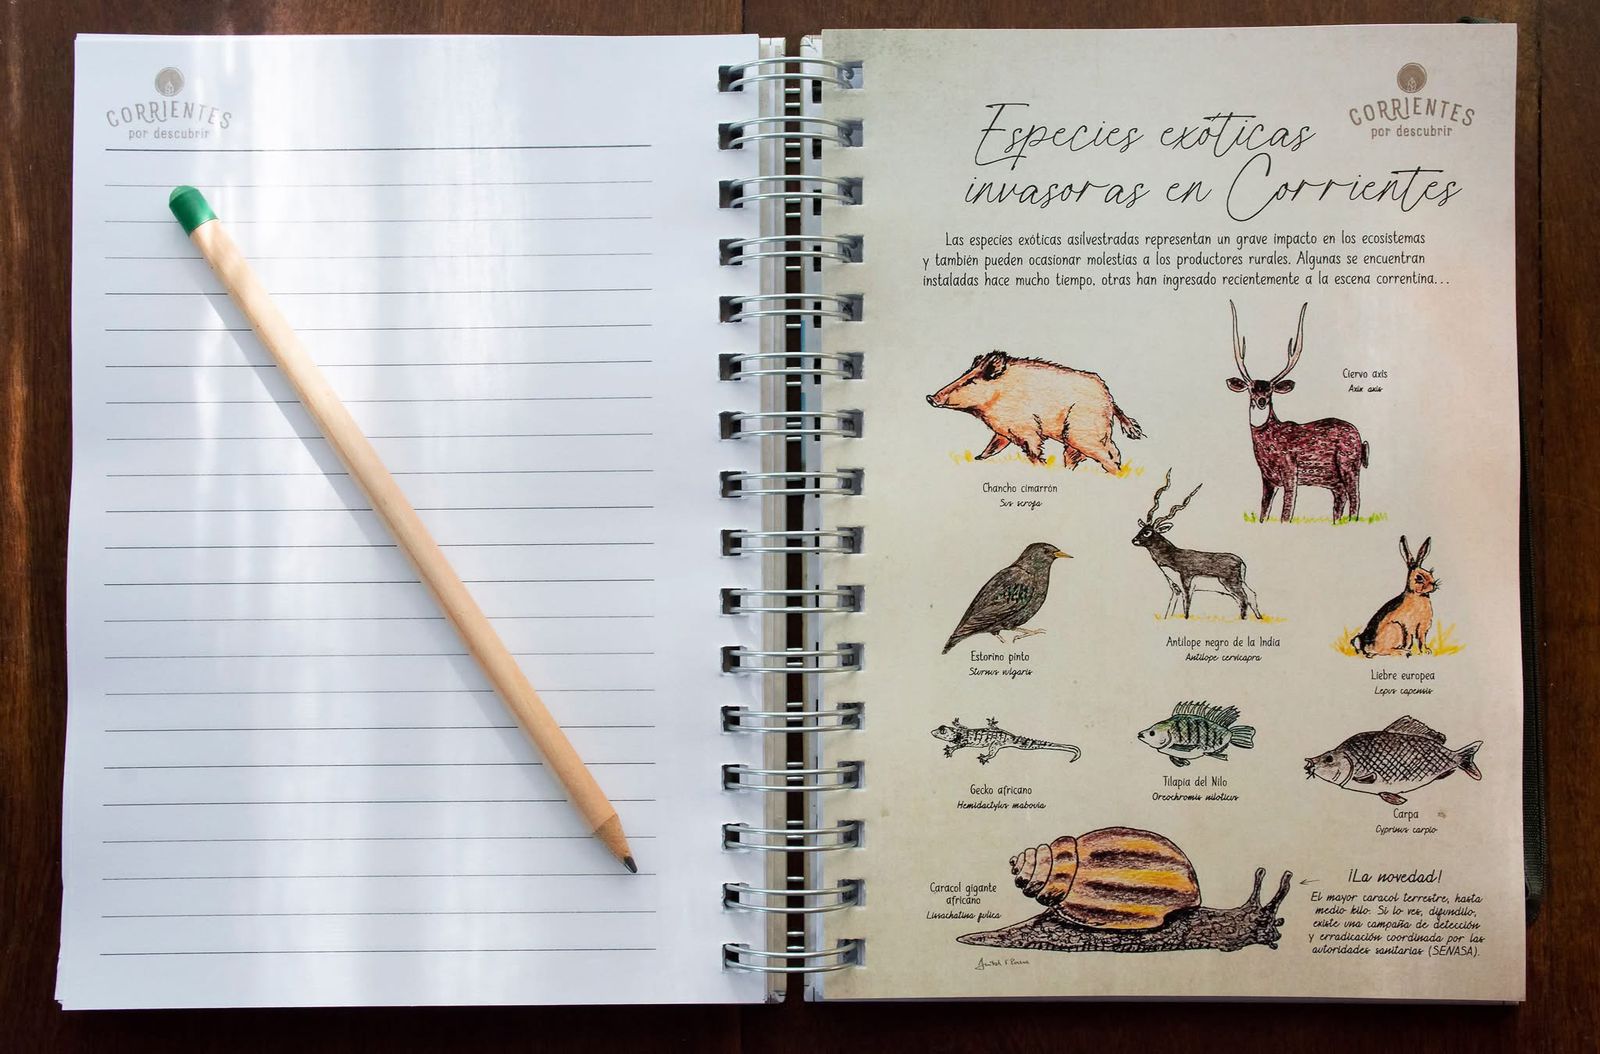 CORRIENTES
por descubrir
CORRIENTES
por descubrir
Especies exóticas
invasoras en Corrientes
Las especies exóticas asilvestradas representan un grave impacto en los ecosistemas
y también pueden ocasionar molestias a los productores rurales. Algunas se encuentran
instaladas hace mucho tiempo, otras han ingresado recientemente a la escena correntina...
Ciervo axis
Axix axis
Chancho cimarrón
Sus scrofa
Estorino pinto
Sturnus vulgaris
Antílope negro de la India
Antilope cervicapra
Liebre europea
Lepus capensis
Gecko africano
Hemidactylus mabouia
Tilapia del Nilo
Oreochromis niloticus
Carpa
Cyprinus carpio
Caracol gigante
africano
Lissachatina fulica
¡La novedad!
El mayor caracol terrestre, hasta
medio kilo. Si lo ves, difundilo,
existe una campaña de detección
y erradicación coordinada por las
autoridades sanitarias (SENASA).